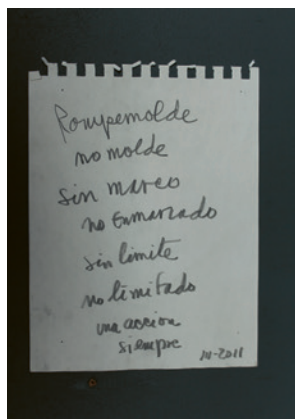 Rompemolde
no molde
sin marco
no enmarcado
sin límite
no limitado
una acción
siempre
III-2011